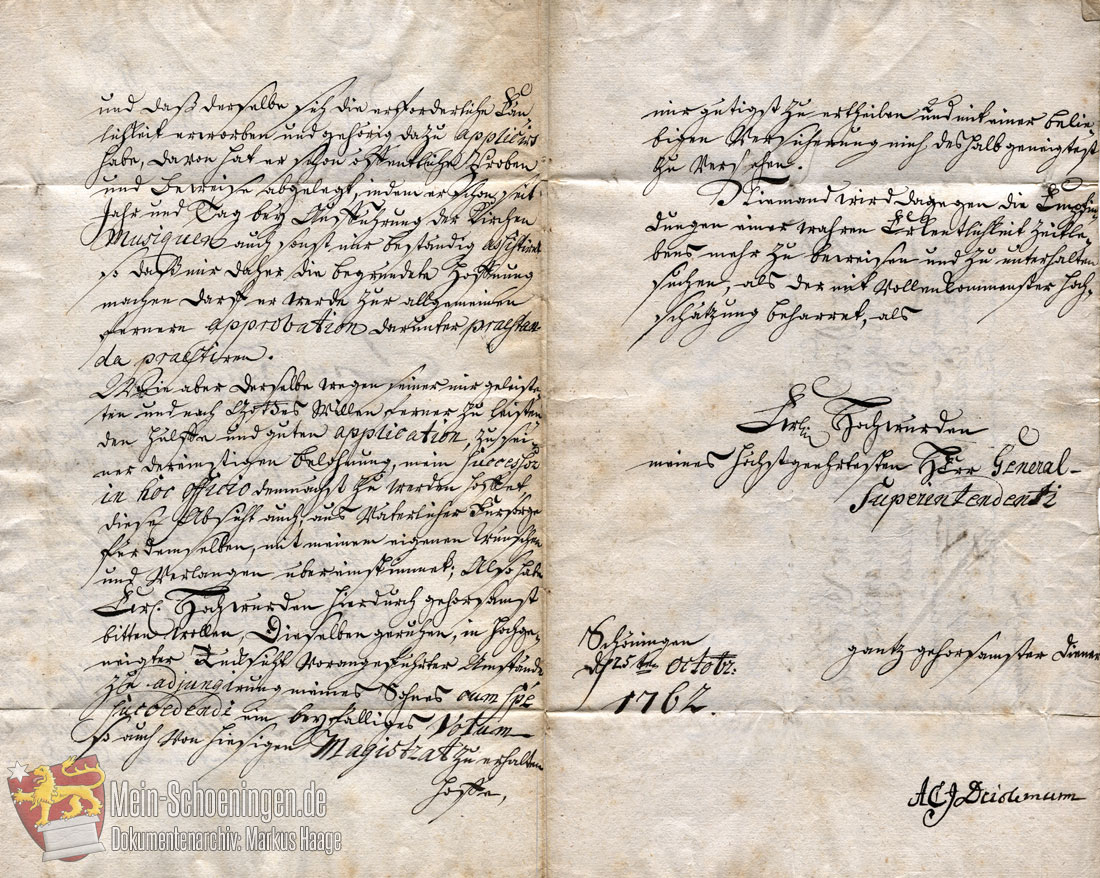 und daß derselbe sich die erforderliche Tün-
lichkeit erworben und gehörig dazu appliciret
habe, davon hat er schon öffentliche Proben
und Beweise abgelegt, indem er schon seit
Jahr und Tag bey Aufführung der Kirchen
Musiquen auch sonst mir beständig assistiret
so daß mir daher die begründete Hoffnung
machen darff er werde zur allgemeinen
fernere approbation darunter praestan-
da praestiren.
Wie aber derselbe wegen seiner mir geleiste-
ten und nach Gottes Willen ferner zu leisten-
den Hülffe und guten application, zu sei-
ner dereinstigen Belohnung, mein successor
in hoc officio demnächst zu werden hoffet
diese Absicht auch, aus Väterlicher Fürsorge
für demselben, mit meinem eigenen Wunsche
und Verlangen übereinstimmet; Also habe
Ew. Hochwürden hierdurch gehorsamst
bitten wollen, Dieselben geruhen, in hochge-
neigter Rücksicht vorangeführter Umstände
zu adjungirung meines Sohnes cum spe
succedendi ein beyfälliges Votum
so auch von hiesigen Magistrat zu erhalten
hoffe,
mir gütigst zu ertheilen und mit einer belie-
bigen Versicherung mich deshalb geneigtest
zu versehen.
Niemand wird dagegen die Empfin-
dungen einer wahren Erkentlichkeit Zeitle-
bens mehr zu beweisen und zu unterhalten
suchen, als der mit vollenkommenster Hoch-
schätzung beharret, als
Hochwürden
meines Höchstgeehrtesten Herr General-
Superintendenti
Schöningen
d 25ten Octobr:
1762.
gantz gehorsamster Diener
Mein-Schoeningen.de
Dokumentenarchiv: Markus Haage